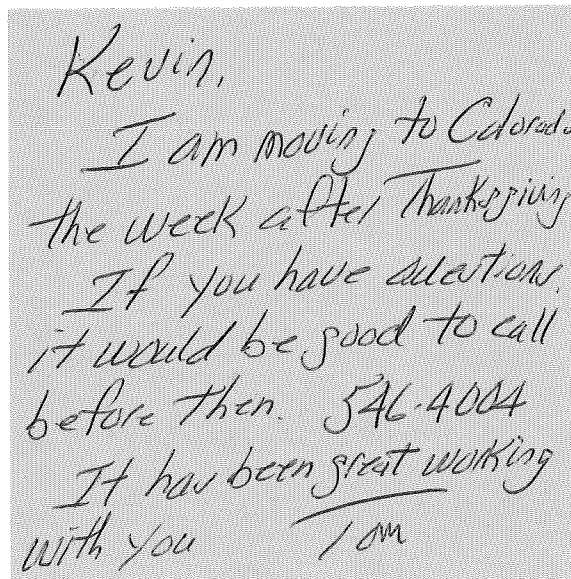 Kevin,
I am moving to Colorado
the week after Thanksgiving
If you have questions,
it would be good to call
before then. 546-4004
It has been great working
with you Tom